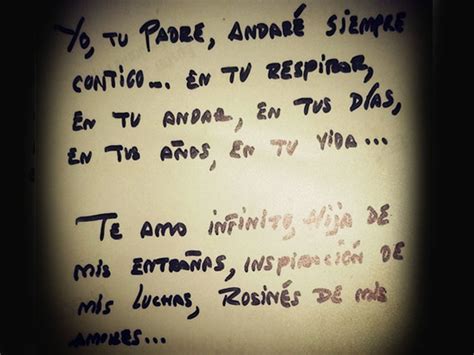 Yo, tu Padre, andaré siempre
contigo... en tu respirar,
en tu andar, en tus días,
en tus años, en tu vida...
Te amo infinito, Hija de
mis entrañas, inspiración de
mis luchas, Rosinés de mis
amores...